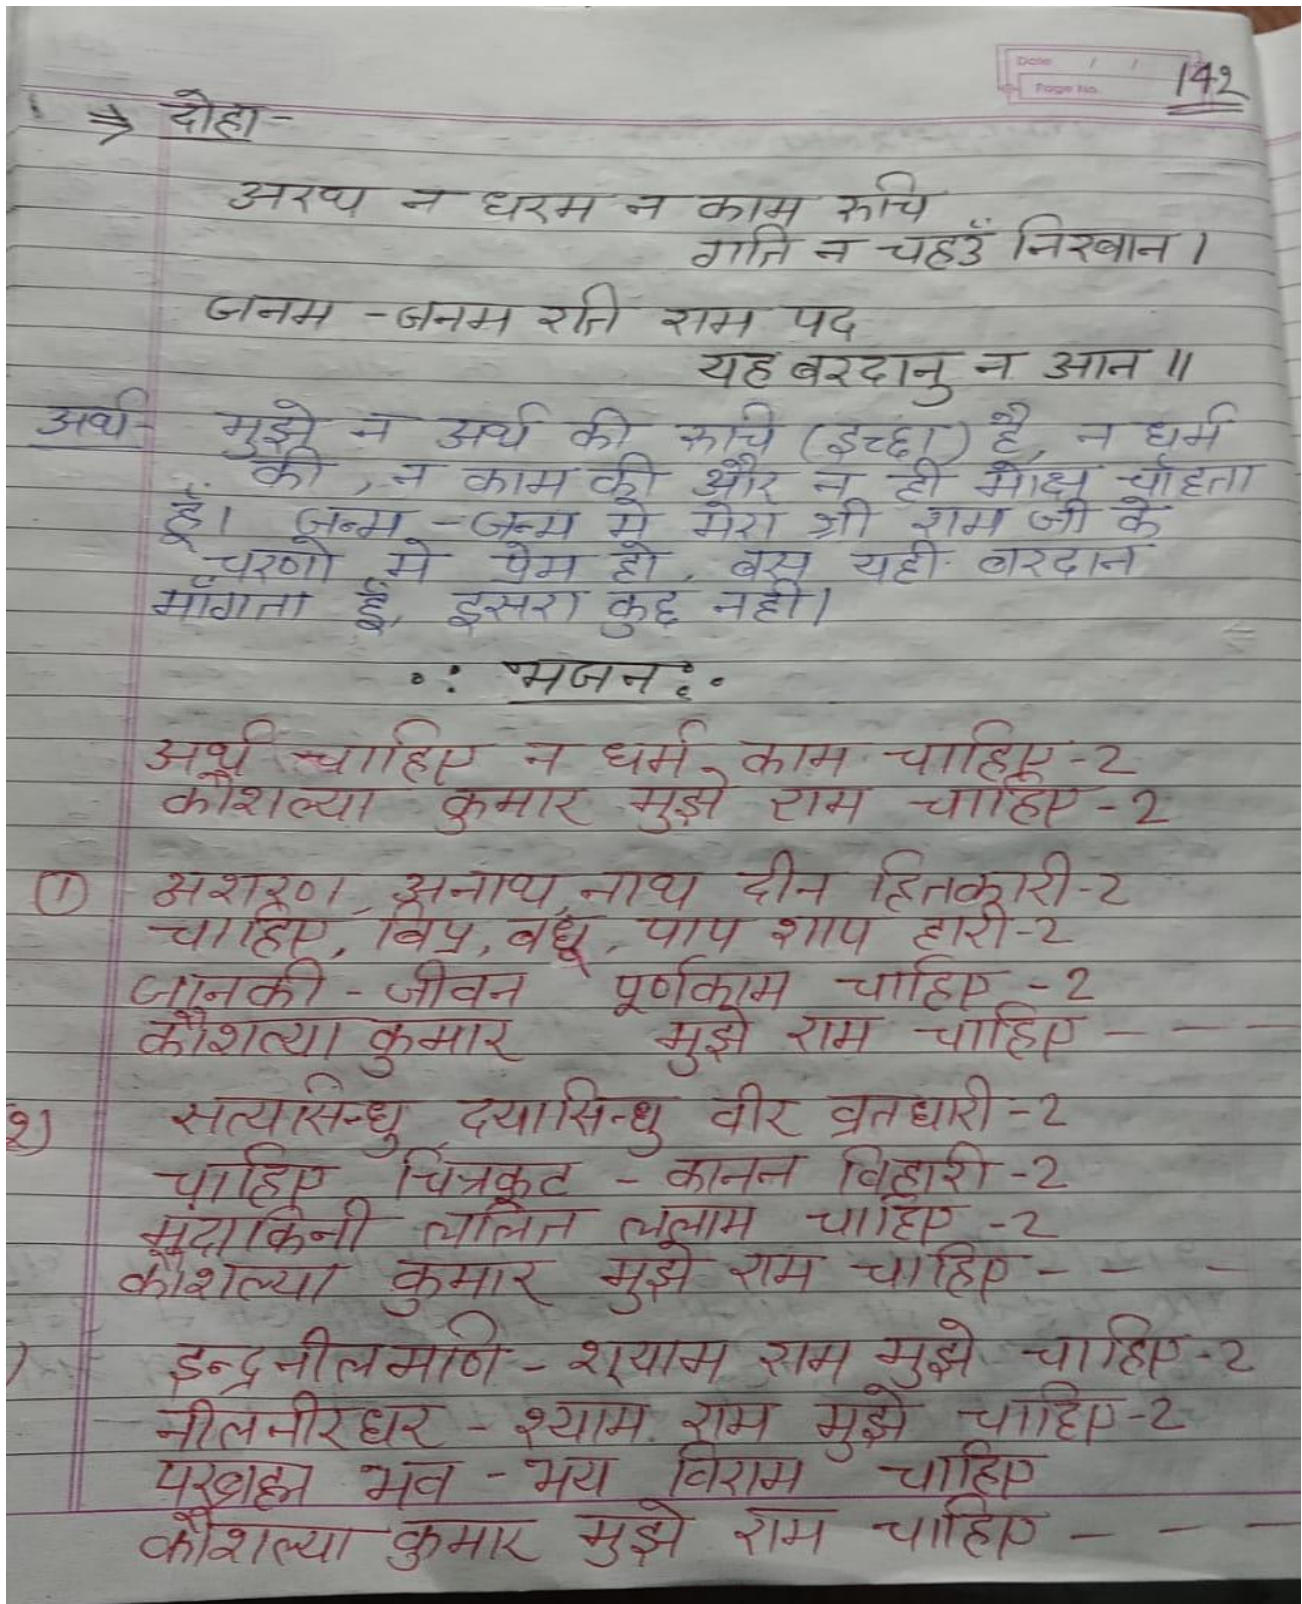 Date / /
Page No.
142
⇒ दोहा-
अरथ न धरम न काम रुचि
गति न चहउँ निरबान।
जनम-जनम रति राम पद
यह बरदानु न आन॥
अर्थ- मुझे न अर्थ की रुचि (इच्छा) है, न धर्म
की, न काम की और न ही मोक्ष चाहता
हूँ। जन्म-जन्म मे मेरा श्री राम जी के
चरणो मे प्रेम हो, बस यही बरदान
माँगता हूँ, दुसरा कुछ नही।
भजन
अर्थ चाहिए न धर्म, काम चाहिए-2
कौशल्या कुमार मुझे राम चाहिए-2
① अशरण, अनाथ, नाथ दीन हितकारी-2
चाहिए, विप्र, बधू, पाप शाप हारी-2
जानकी-जीवन पूर्णकाम चाहिए-2
कौशल्या कुमार मुझे राम चाहिए - - -
2) सत्यसिन्धु दयासिन्धु वीर व्रतधारी-2
चाहिए चित्रकूट-कानन विहारी-2
मंदाकिनी ललित ललाम चाहिए-2
कौशल्या कुमार मुझे राम चाहिए - - -
) इन्द्रनीलमणि-श्याम राम मुझे चाहिए-2
नीलनीरधर-श्याम राम मुझे चाहिए-2
परब्रह्म भव-भय विराम चाहिए
कौशल्या कुमार मुझे राम चाहिए - - -